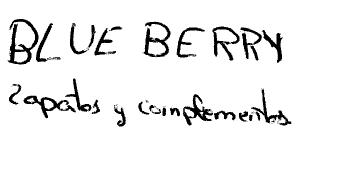 BLUE BERRY
Zapatos y complementos